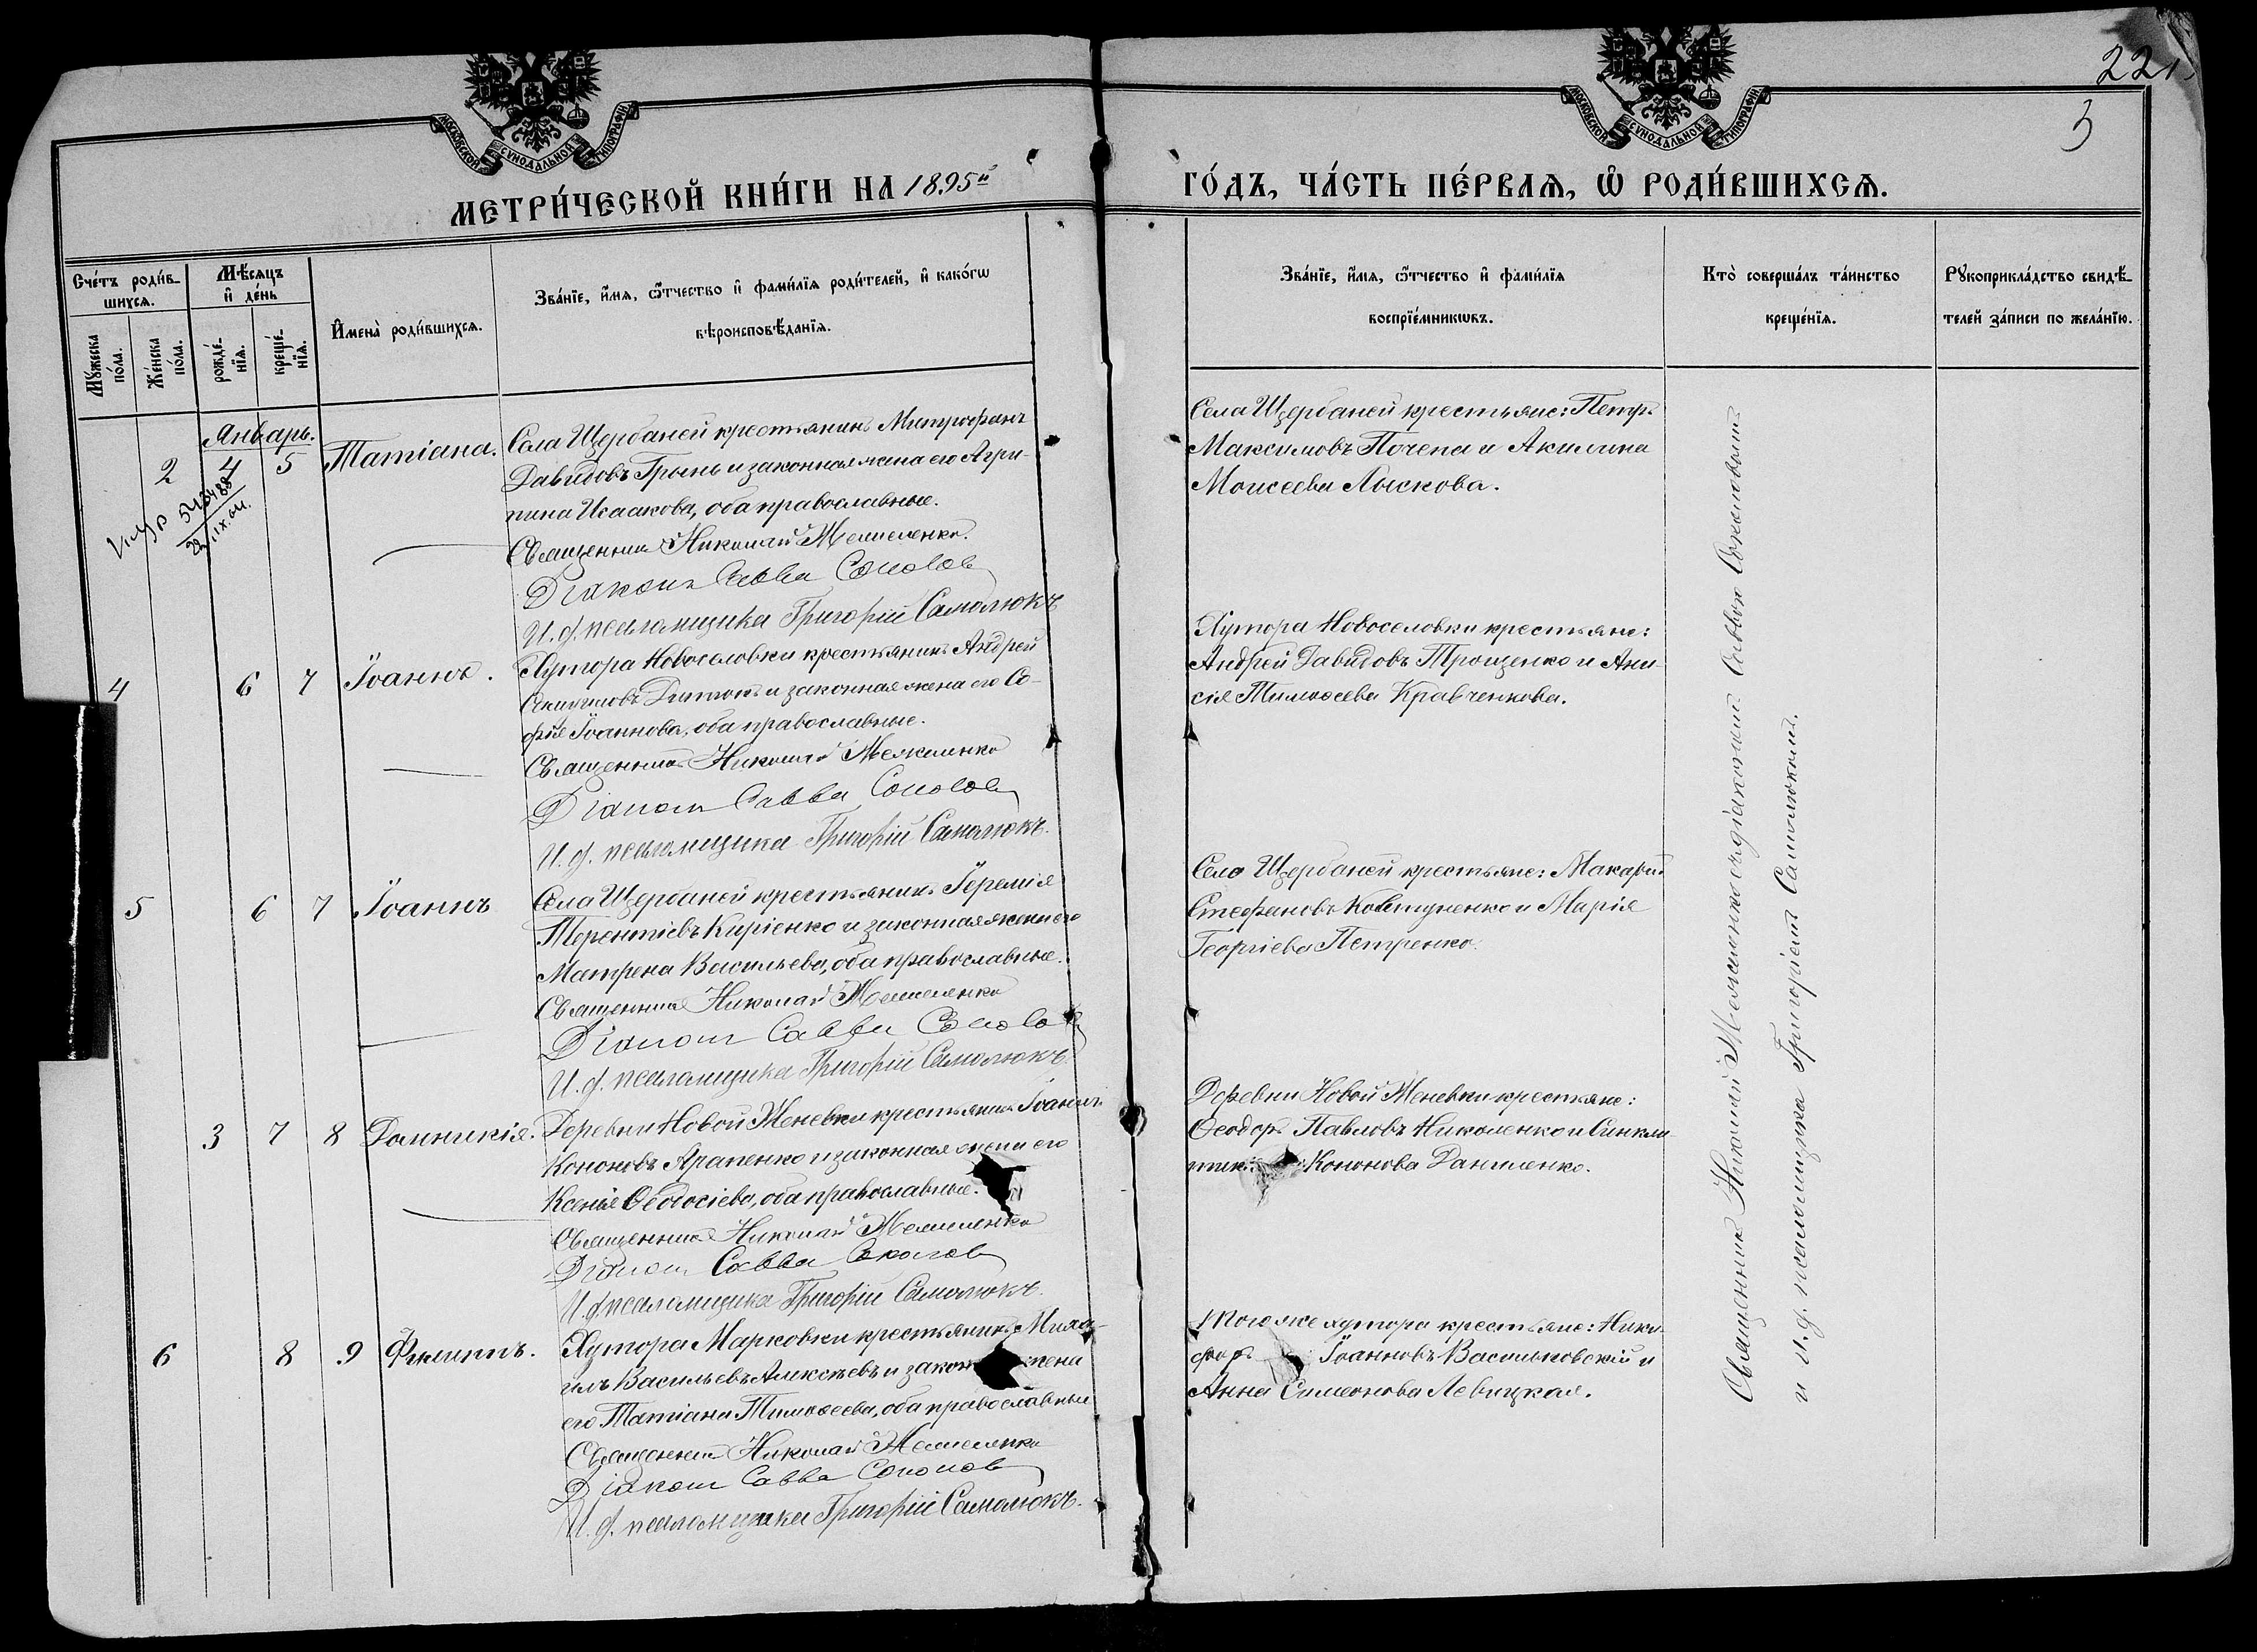 221
3
МОСКОВСКОЙ СѴНОДАЛЬНОЙ ТИПОГРАФІИ
МЕТРИ́ЧЕСКОЙ КНИ́ГИ НА 1895й
МОСКОВСКОЙ СѴНОДАЛЬНОЙ ТИПОГРАФІИ
ГО́ДЪ, ЧА́СТЬ ПЕ́РВАѦ, Ѡ҆ РОДИ́ВШИХСѦ.
Сче́тъ роди́в-
шихсѧ.
Мꙋ́жеска
по́ла.
Же́нска
по́ла.
Мѣ́сѧцъ
и҆ де́нь
рожде́-
нїѧ.
креще́-
нїѧ.
И҆мена̀ роди́вшихсѧ.
Зва́нїе, и҆́мѧ, ѻ҆́тчество и҆ фами́лїѧ роди́телей, и҆ како́гѡ
вѣроисповѣ́данїѧ.
Зва́нїе, и҆́мѧ, ѻ҆́тчество и҆ фами́лїѧ
воспрїе́мникѡвъ.
Кто̀ соверша́лъ та́инство
креще́нїѧ.
Рꙋкоприкла́дство свидѣ́-
телей за́писи по жела́нїю.
Январь.
2 4 5 Татіана.
Села Щербаней крестьянинъ Митрофанъ
Давидовъ Грынь и законная жена его Агри-
пина Исаакова, оба православные.
Священникъ Николай
Діаконъ Савва Соколов
И. д. псаломщика Григорій Самолюкъ
Села Щербаней крестьяне: Петръ
Максимовъ Почепа и Акилина
Моисеева Лыскова.
4 6 7 Іоаннъ.
Хутора Новоселовки крестьянинъ Андрей
и законная жена его Со-
фія Іоаннова, оба православные.
Священникъ Николай
Діаконъ Савва Соколов
И. д. псаломщика Григорій Самолюкъ.
Хутора Новоселовки крестьяне:
Андрей Давидовъ Трощенко и Ани-
сія Тимоѳеева Кравченкова.
5 6 7 Іоаннъ
Села Щербаней крестьянинъ Іеремія
Терентіевъ Киріенко и законная жена его
Матрена Васильева, оба православные.
Священникъ Николай
Діаконъ Савва Соколов
И. д. псаломщика Григорій Самолюкъ
Села Щербаней крестьяне: Макарій
Стефановъ Ковтуненко и Марія
Георгіева Петренко.
3 7 8 Домникія.
Деревни Новой Женевки крестьянинъ Іоаннъ
Кононовъ Арапенко и законная жена его
Ксенія Ѳеодосіева, оба православные.
Священникъ Николай
Діаконъ Савва Соколов
И. д. псаломщика Григорій Самолюкъ.
Деревни Новой Женевки крестьяне:
Ѳеодоръ Павловъ Николенко и Синкли-
тик Кононова Даниленко.
6 8 9 Филиппъ.
Хутора Марковки крестьянинъ Миха-
илъ Васильевъ Алексѣевъ и закон жена
его Татіана Тимоѳеева, оба православные
Священникъ Николай
Діаконъ Савва Соколов
И. д. псаломщика Григорій Самолюкъ.
Того же хутора крестьяне: Ники-
форъ Іоанновъ Васильковскій и
Анна Симеонова Левицкая.
Священникъ Николай съ діакономъ Саввою Соколовымъ
и и. д. псаломщика Григоріемъ Самолюкомъ.